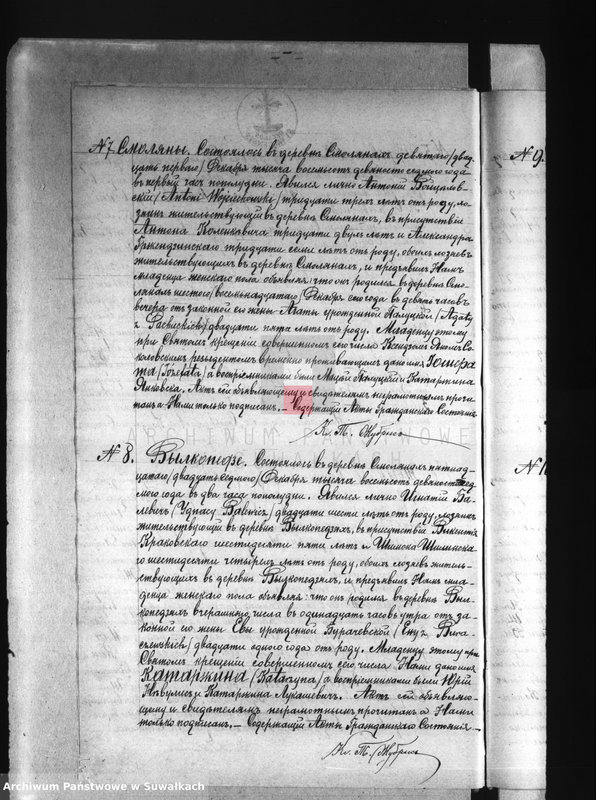 № 7 Смоляны. Состоялось въ деревнѣ Смолянахъ девятаго /двад-
цать перваго/ Декабря тысяча восемьсотъ девяносто седьмаго года
въ первый часъ пополудни. Явился лично Антоній Войцѣхов-
скій /Antoni Wojciechowski/ тридцати трехъ лѣтъ отъ роду, ло-
жникъ жительствующій въ деревнѣ Смолянахъ, въ присутствіи
Антона Коленкевича тридцати двухъ лѣтъ и Александра
тридцати семи лѣтъ отъ роду, обоихъ
жительствующихъ въ деревнѣ Смолянахъ, и предъявилъ Намъ
младенца женскаго пола объявляя: что онъ родился въ деревнѣ Смо-
лянахъ шестого /восемьнадцатаго/ Декабря сего года въ девять часовъ
вечера отъ законной его жены Агаты урожденной /Agaty
z / двадцати пяти лѣтъ отъ роду. Младенцу этому
при Святомъ крещеніи совершенномъ сего числа Ксендзомъ Со-
коловскимъ резидентомъ временно проживающимъ дано имя Юзефа-
та /Józefata/ а воспріемниками были Мацѣй и Катаржина
Янковска. Актъ сей объявляющему и свидѣтелямъ неграмотнымъ прочи-
танъ а Нами только подписанъ. — Содержащій Акты Гражданскаго Состоянія
Кс. Т. Жубрис
ARCHIWUM PAŃSTWOWE
№ 8. Вылкопедзе. Состоялось въ деревнѣ Смолянахъ пятнад-
цатаго /двадцать седьмого/ Декабря тысяча восемьсотъ девяносто седь-
мого года въ два часа пополудни. Явился лично Игнатій Ба-
левичъ / Balewicz/ двадцати шести лѣтъ отъ роду,
жительствующій въ деревнѣ Вылкопедзяхъ, въ присутствіи Викентія
Краковскаго шестидесяти пяти лѣтъ и Шимона
шестидесяти четырехъ лѣтъ отъ роду, обоихъ житель-
ствующихъ въ деревнѣ Вылкопедзяхъ, и предъявилъ Намъ мла-
денца женскаго пола объявляя: что онъ родился въ деревнѣ Выл-
копедзяхъ вчерашняго числа въ одинадцать часовъ утра отъ за-
конной его жены Евы урожденной Бурачевской /Ewy z Bura-
czewskich/ двадцати одного года отъ роду. Младенцу этому при
Святомъ крещеніи совершенномъ сего числа Нами дано имя
Катаржина /Katarzyna/ а воспріемниками были Юрій
и Катаржина Лукашевичъ. Актъ сей объявляю-
щему и свидѣтелямъ неграмотнымъ прочитанъ а Нами
только подписанъ. — Содержащій Акты Гражданскаго Состоянія. —
Кс. Т. Жубрис
№ 9.
Archiwum Państwowe w Suwałkach